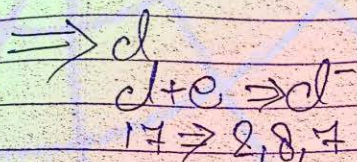 ⇒ cl
cl+e ⇒ cl⁻
17 ⇒ 2,8,7